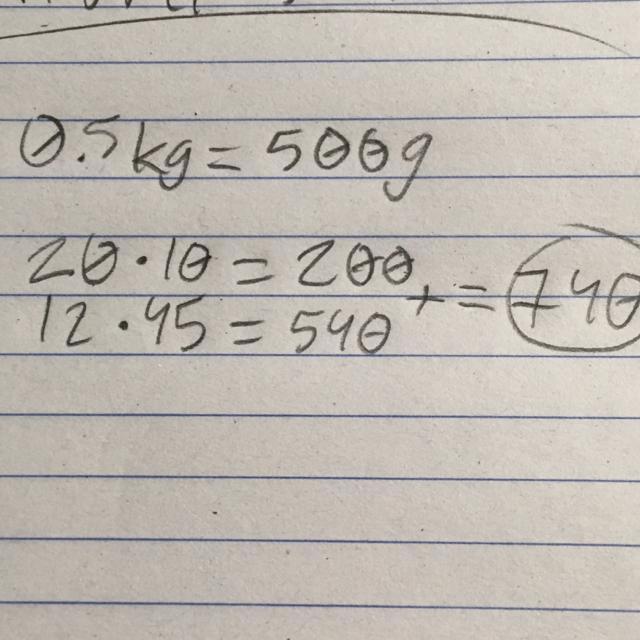 0.5kg = 500g
20·10 = 200
12·45 = 540 + = 740